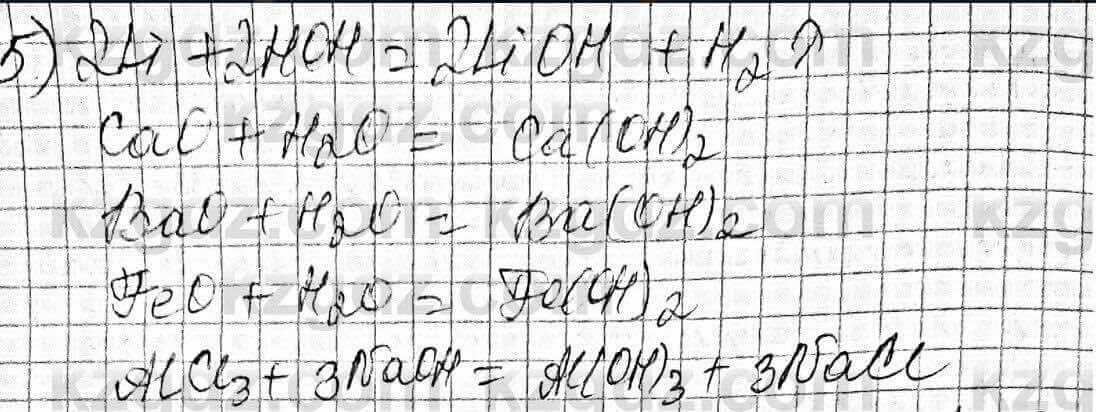 5) 2Li + 2HOH = 2LiOH + H₂↑
CaO + H₂O = Ca(OH)₂
BaO + H₂O = Ba(OH)₂
FeO + H₂O = Fe(OH)₂
AlCl₃ + 3NaOH = Al(OH)₃ + 3NaCl
kzgdz.com